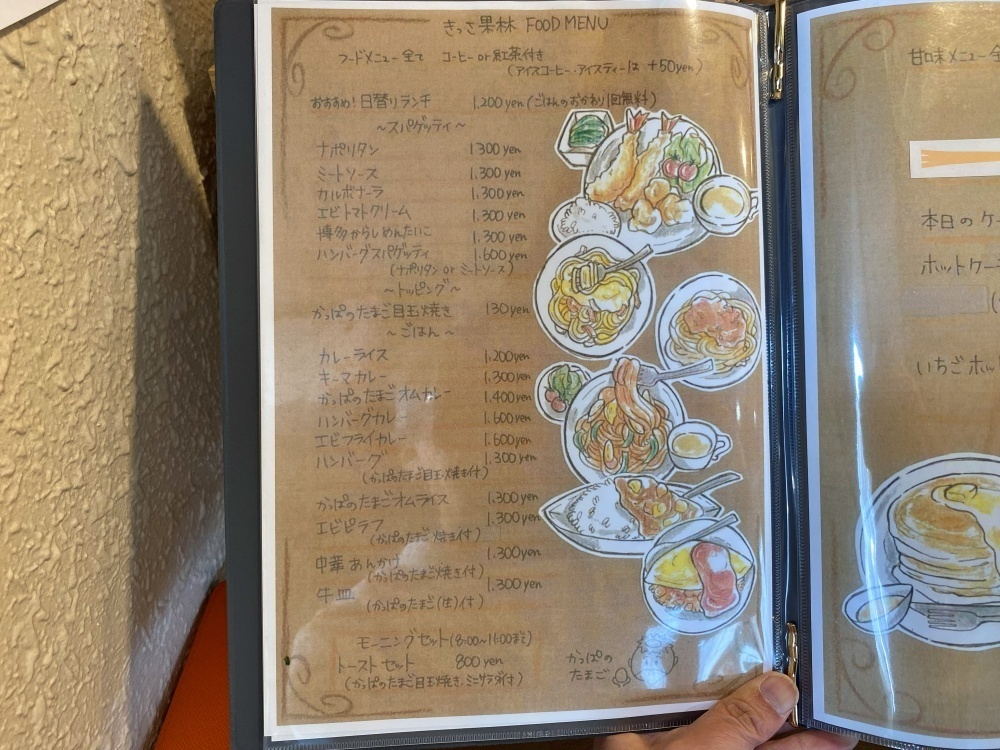 きっさ果林 FOOD MENU
フードメニュー全て コーヒー or 紅茶付き
(アイスコーヒー・アイスティーは +50yen)
おすすめ!日替りランチ 1,200 yen (ごはんのおかわり1回無料)
～スパゲッティ～
ナポリタン 1300 yen
ミートソース 1,300 yen
カルボナーラ 1,300 yen
エビトマトクリーム 1,300 yen
博多からしめんたいこ 1,300 yen
ハンバーグスパゲッティ 1,600 yen
(ナポリタン or ミートソース)
～トッピング～
かっぱのたまご目玉焼き 130yen
～ごはん～
カレーライス 1,200yen
キーマカレー 1,300yen
かっぱのたまごオムカレー 1,400yen
ハンバーグカレー 1,600yen
エビフライカレー 1,600yen
ハンバーグ 1,300 yen
(かっぱのたまご目玉焼き付)
かっぱのたまごオムライス 1,300yen
エビピラフ 1,300yen
(かっぱのたまご 焼き付)
中華あんかけ 1,300yen
(かっぱのたまご焼き付)
牛皿 1,300 yen
(かっぱのたまご(生)付)
モーニングセット(8:00~11:00まで)
トーストセット 800 yen
(かっぱのたまご目玉焼き・ミニサラダ付)
かっぱの
たまご
甘味メニュー全
本日のケ
ホットケー
(
いちごホッ